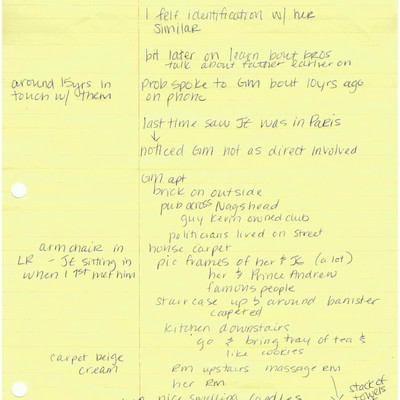 I felt identification w/ her
similar
bit later on learn bout bros
talk about father earlier on
around 15yrs in
touch w/ them
prob spoke to GM bout 10yrs ago
on phone
last time saw JE was in Paris
↓
noticed GM not as direct involved
GM apt
brick on outside
pub across Nagshead
guy Kevin owned club
politicians lived on street
armchair in
LR - JE sitting in
when I 1st met him
house carpet
pic frames of her & JE (a lot)
her & Prince Andrew
famous people
staircase up & around banister
carpeted
kitchen downstairs
go & bring tray of tea &
like cookies
carpet beige
cream
Rm upstairs massage rm
her Rm
stack of
towels
nice smelling candles